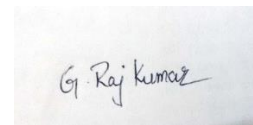 G. Raj Kumar